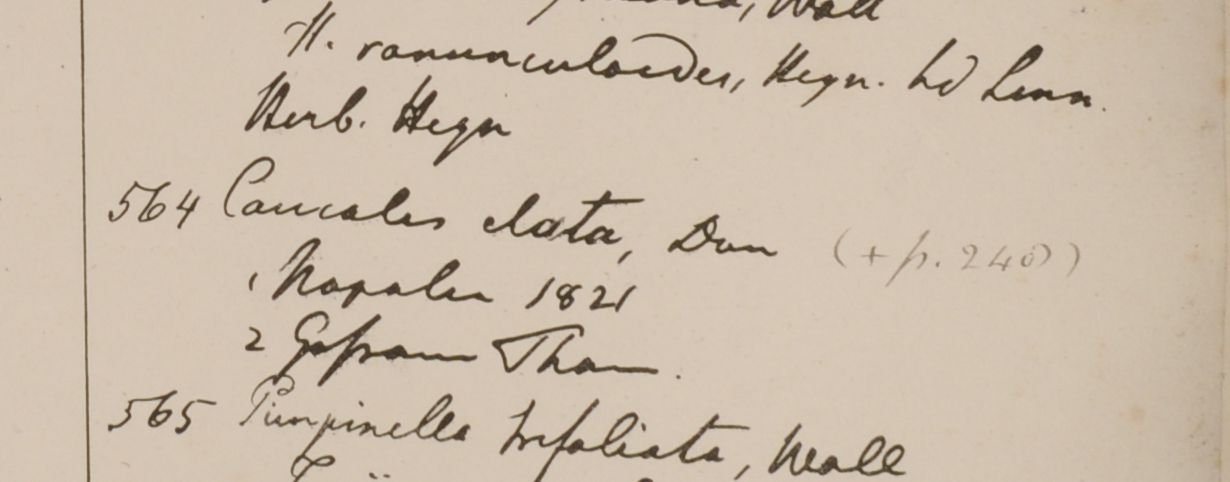 Wall
H. ranunculoides, Heyn. hd Linn.
Herb. Heyn
564 Caucales elata, Don (+ p. 240)
1 Napalia 1821
2 Gossam Than.
565 Pimpinella trifoliata, Wall